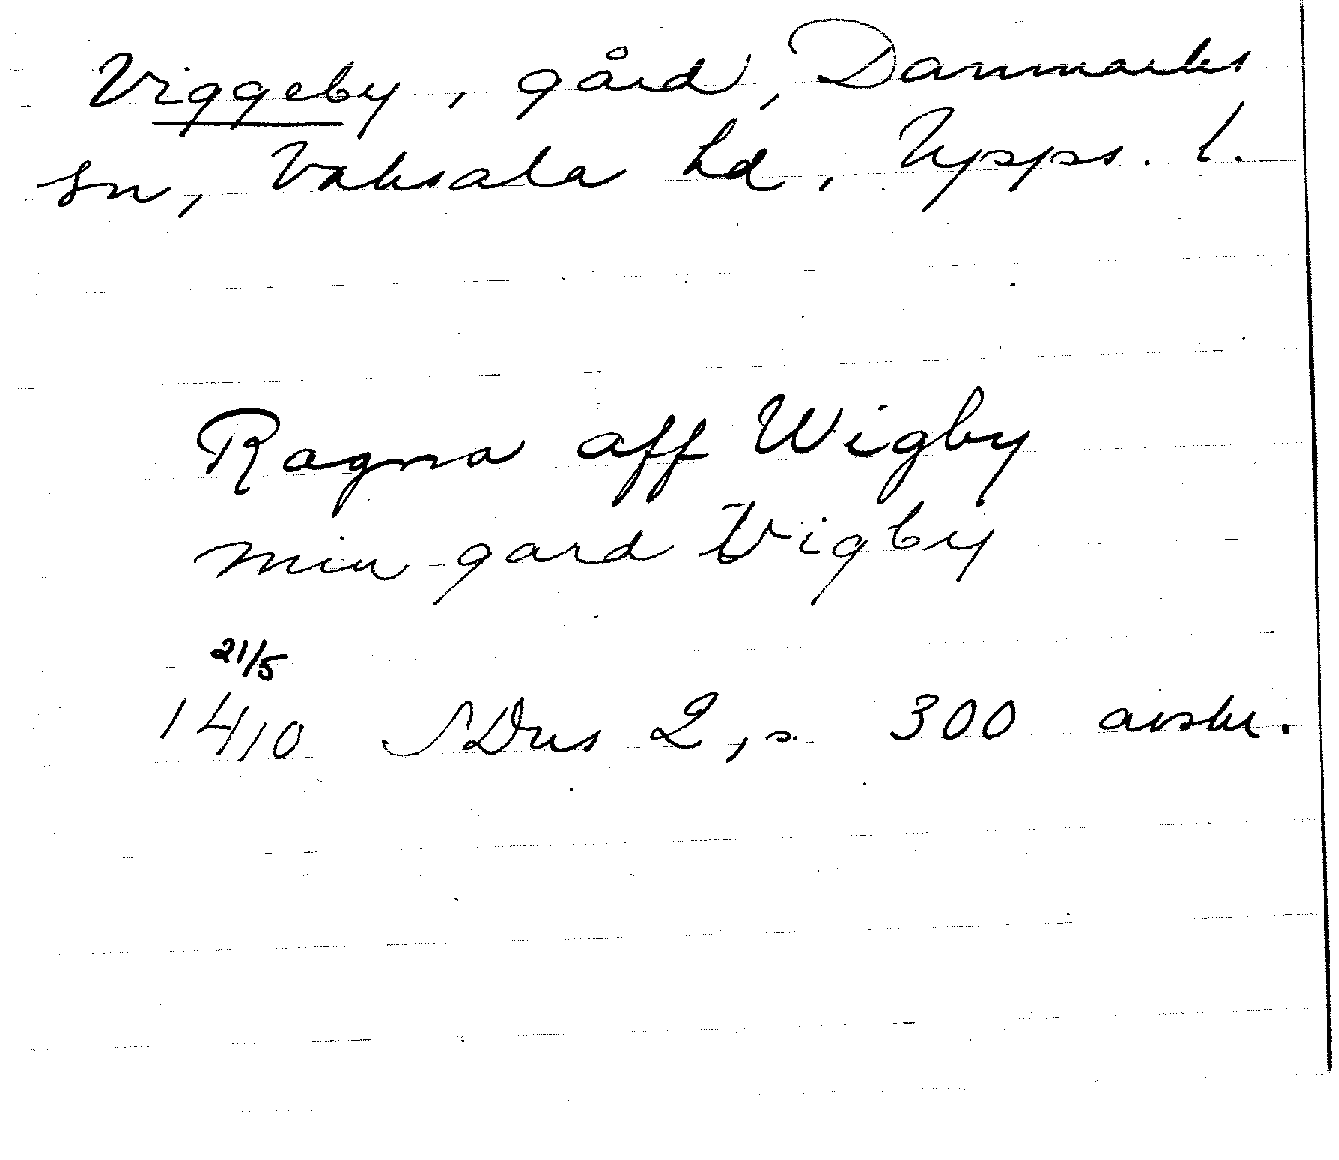 Viggeby, gård, Danmarks
sn, Vaksala hd, Upps. l.
Ragna aff Wigby
min gard Vigby
21/5
1410 SDns 2, s. 300 avskr.